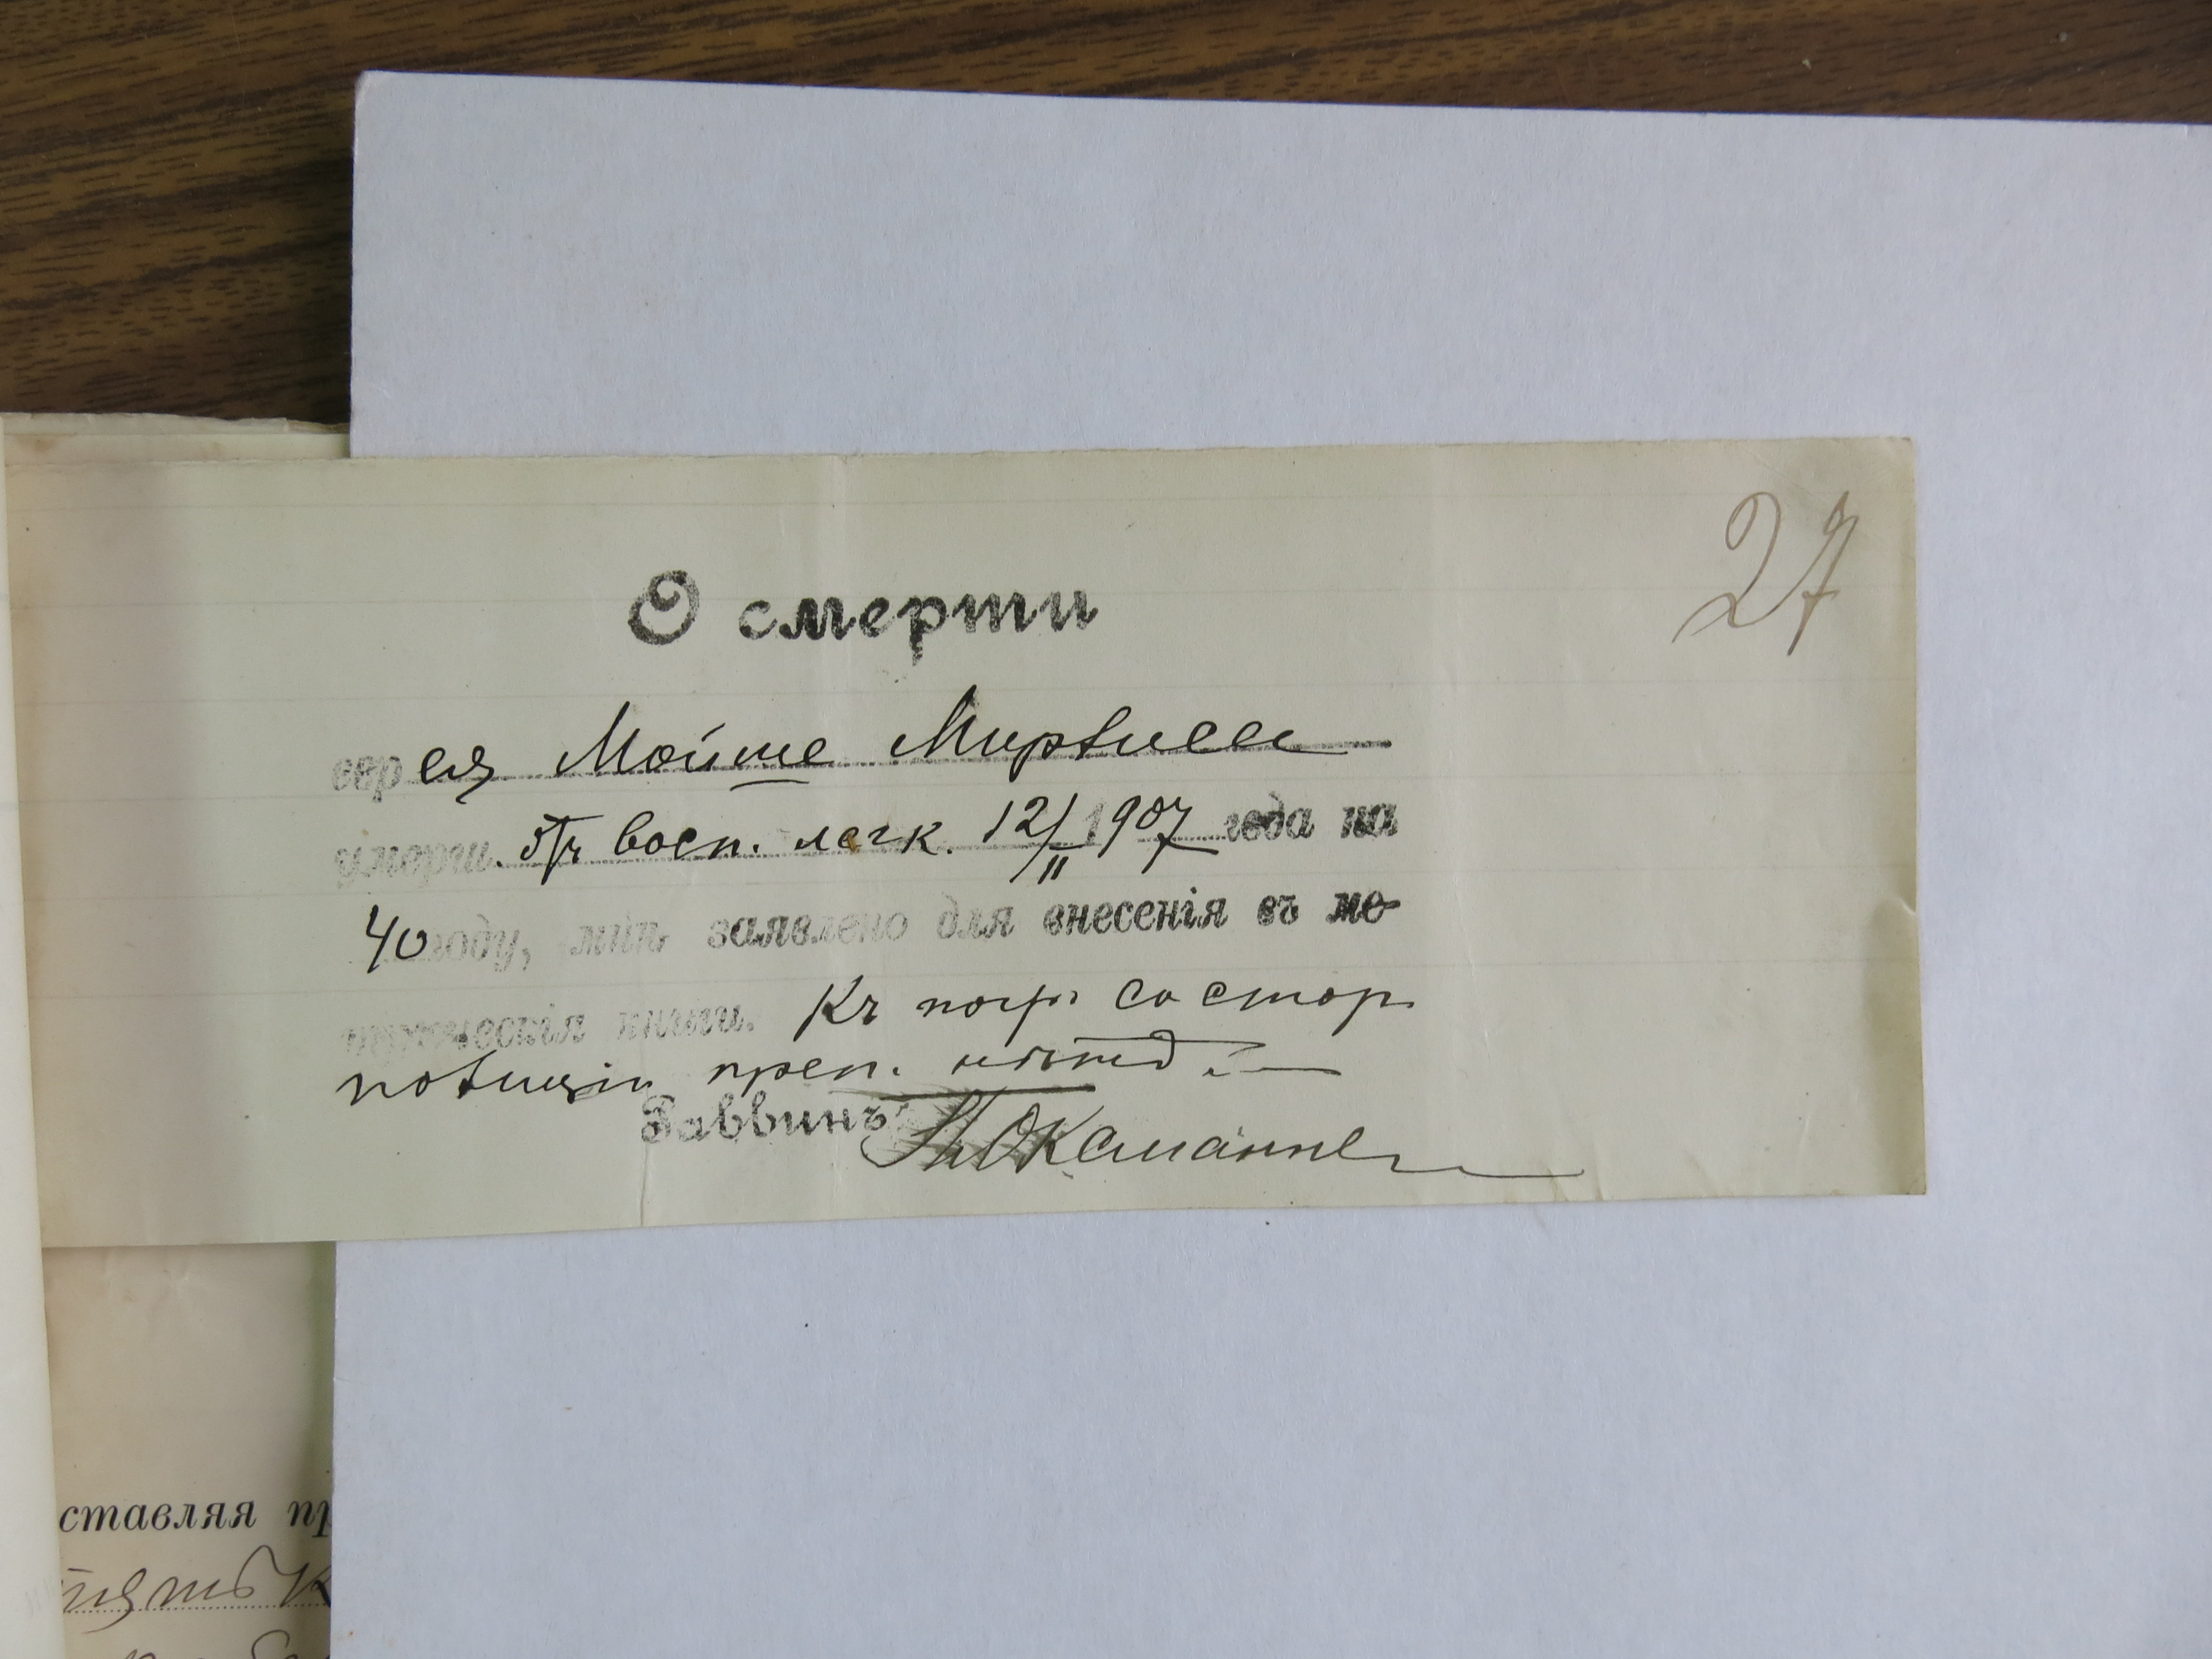 27
О смерти
еврея Мойше Мирвисса
умерш. отъ восп. легк. 12/II 1907 года на
40 году, мнѣ заявлено для внесенія въ ме-
трическія книги. Къ погр. со стор.
полиціи преп. нѣтъ.
Раввинъ
ставляя пр